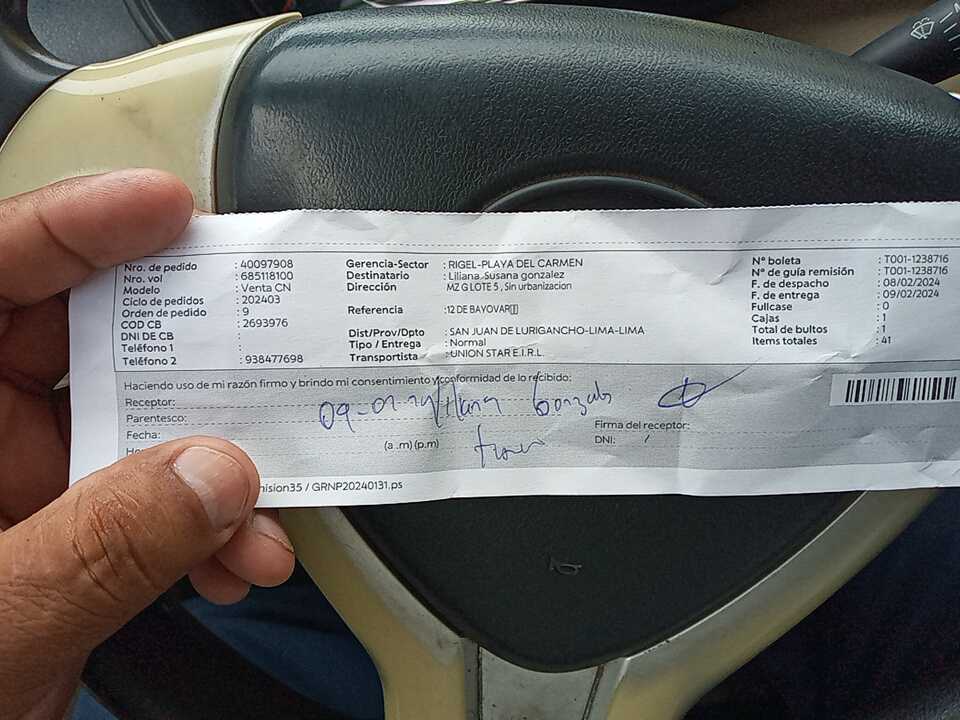 Nro. de pedido : 40097908
Nro. vol : 685118100
Modelo : Venta CN
Ciclo de pedidos : 202403
Orden de pedido : 9
COD CB : 2693976
DNI DE CB :
Teléfono 1 :
Teléfono 2 : 938477698
Gerencia-Sector : RIGEL-PLAYA DEL CARMEN
Destinatario : Liliana Susana gonzalez
Dirección : MZ G LOTE 5 , Sin urbanizacion
Referencia :12 DE BAYOVAR
Dist/Prov/Dpto : SAN JUAN DE LURIGANCHO-LIMA-LIMA
Tipo / Entrega : Normal
Transportista : UNION STAR E.I.R.L.
N° boleta : T001-1238716
N° de guía remisión : T001-1238716
F. de despacho : 08/02/2024
F. de entrega : 09/02/2024
Fullcase : 0
Cajas : 1
Total de bultos : 1
Items totales : 41
Haciendo uso de mi razón firmo y brindo mi consentimiento y conformidad de lo recibido:
Receptor:
Parentesco:
Fecha:
(a .m) (p.m)
Firma del receptor:
DNI:
ision35 / GRNP20240131.ps